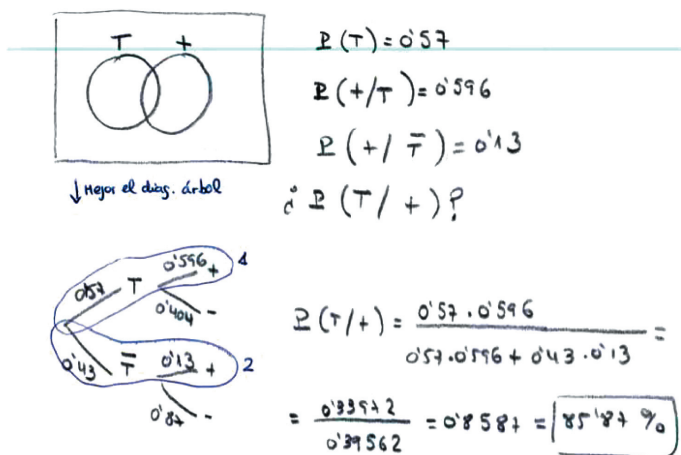 T +
P(T)=0'57
P(+/T)=0'596
P(+/T̄)=0'13
¿P(T/+)?
↓ Mejor el diag. árbol
0'57 T 0'596 + 1
0'404 -
0'43 T̄ 0'13 + 2
0'87 -
P(T/+) = 0'57·0'596 / 0'57·0'596+0'43·0'13 =
= 0'33972 / 0'39562 = 0'8587 = 85'87 %